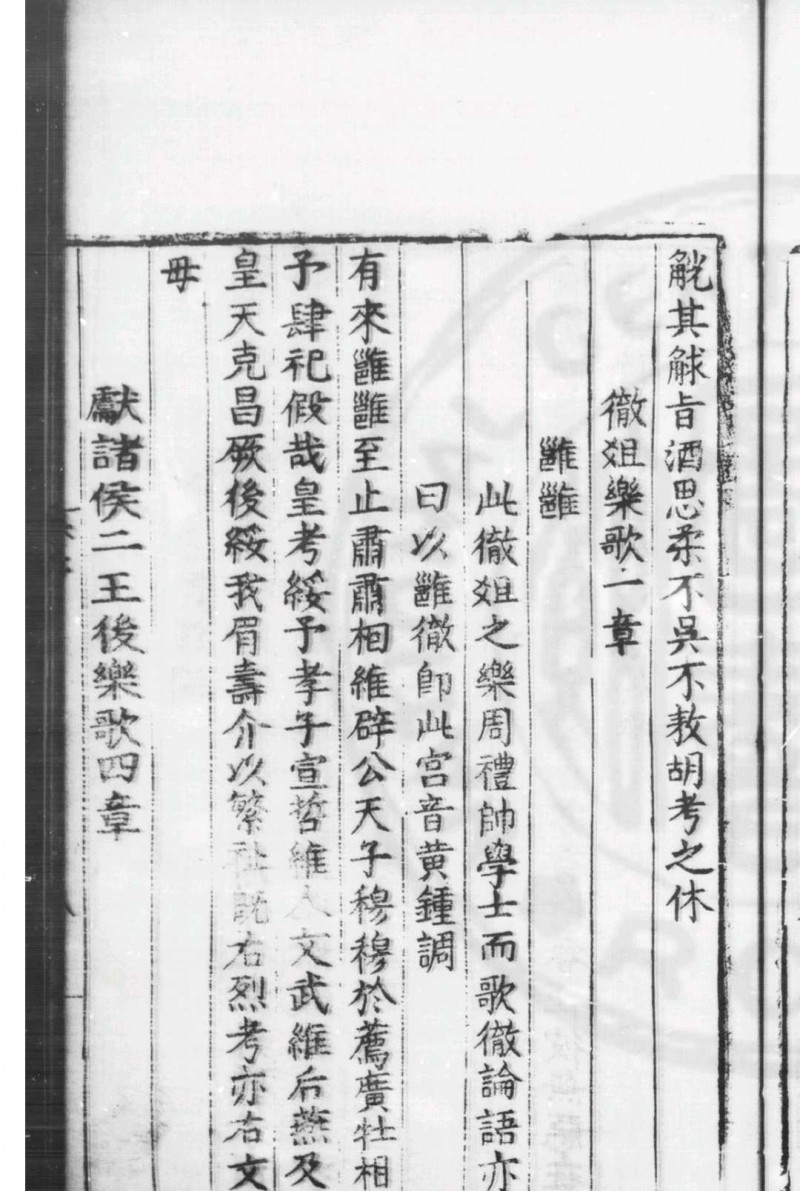 觥其觩旨酒思柔不吳不敖胡考之休
徹俎樂歌一章
雝雝
此徹俎之樂周禮帥學士而歌徹論語亦
曰以雝徹卽此宮音黃鍾調
有來雝雝至止肅肅相維辟公天子穆穆於薦廣牡相
予肆祀假哉皇考綏予孝子宣哲維人文武維后燕及
皇天克昌厥後綏我眉壽介以繁祉既右烈考亦右文
母
獻諸侯二王後樂歌四章